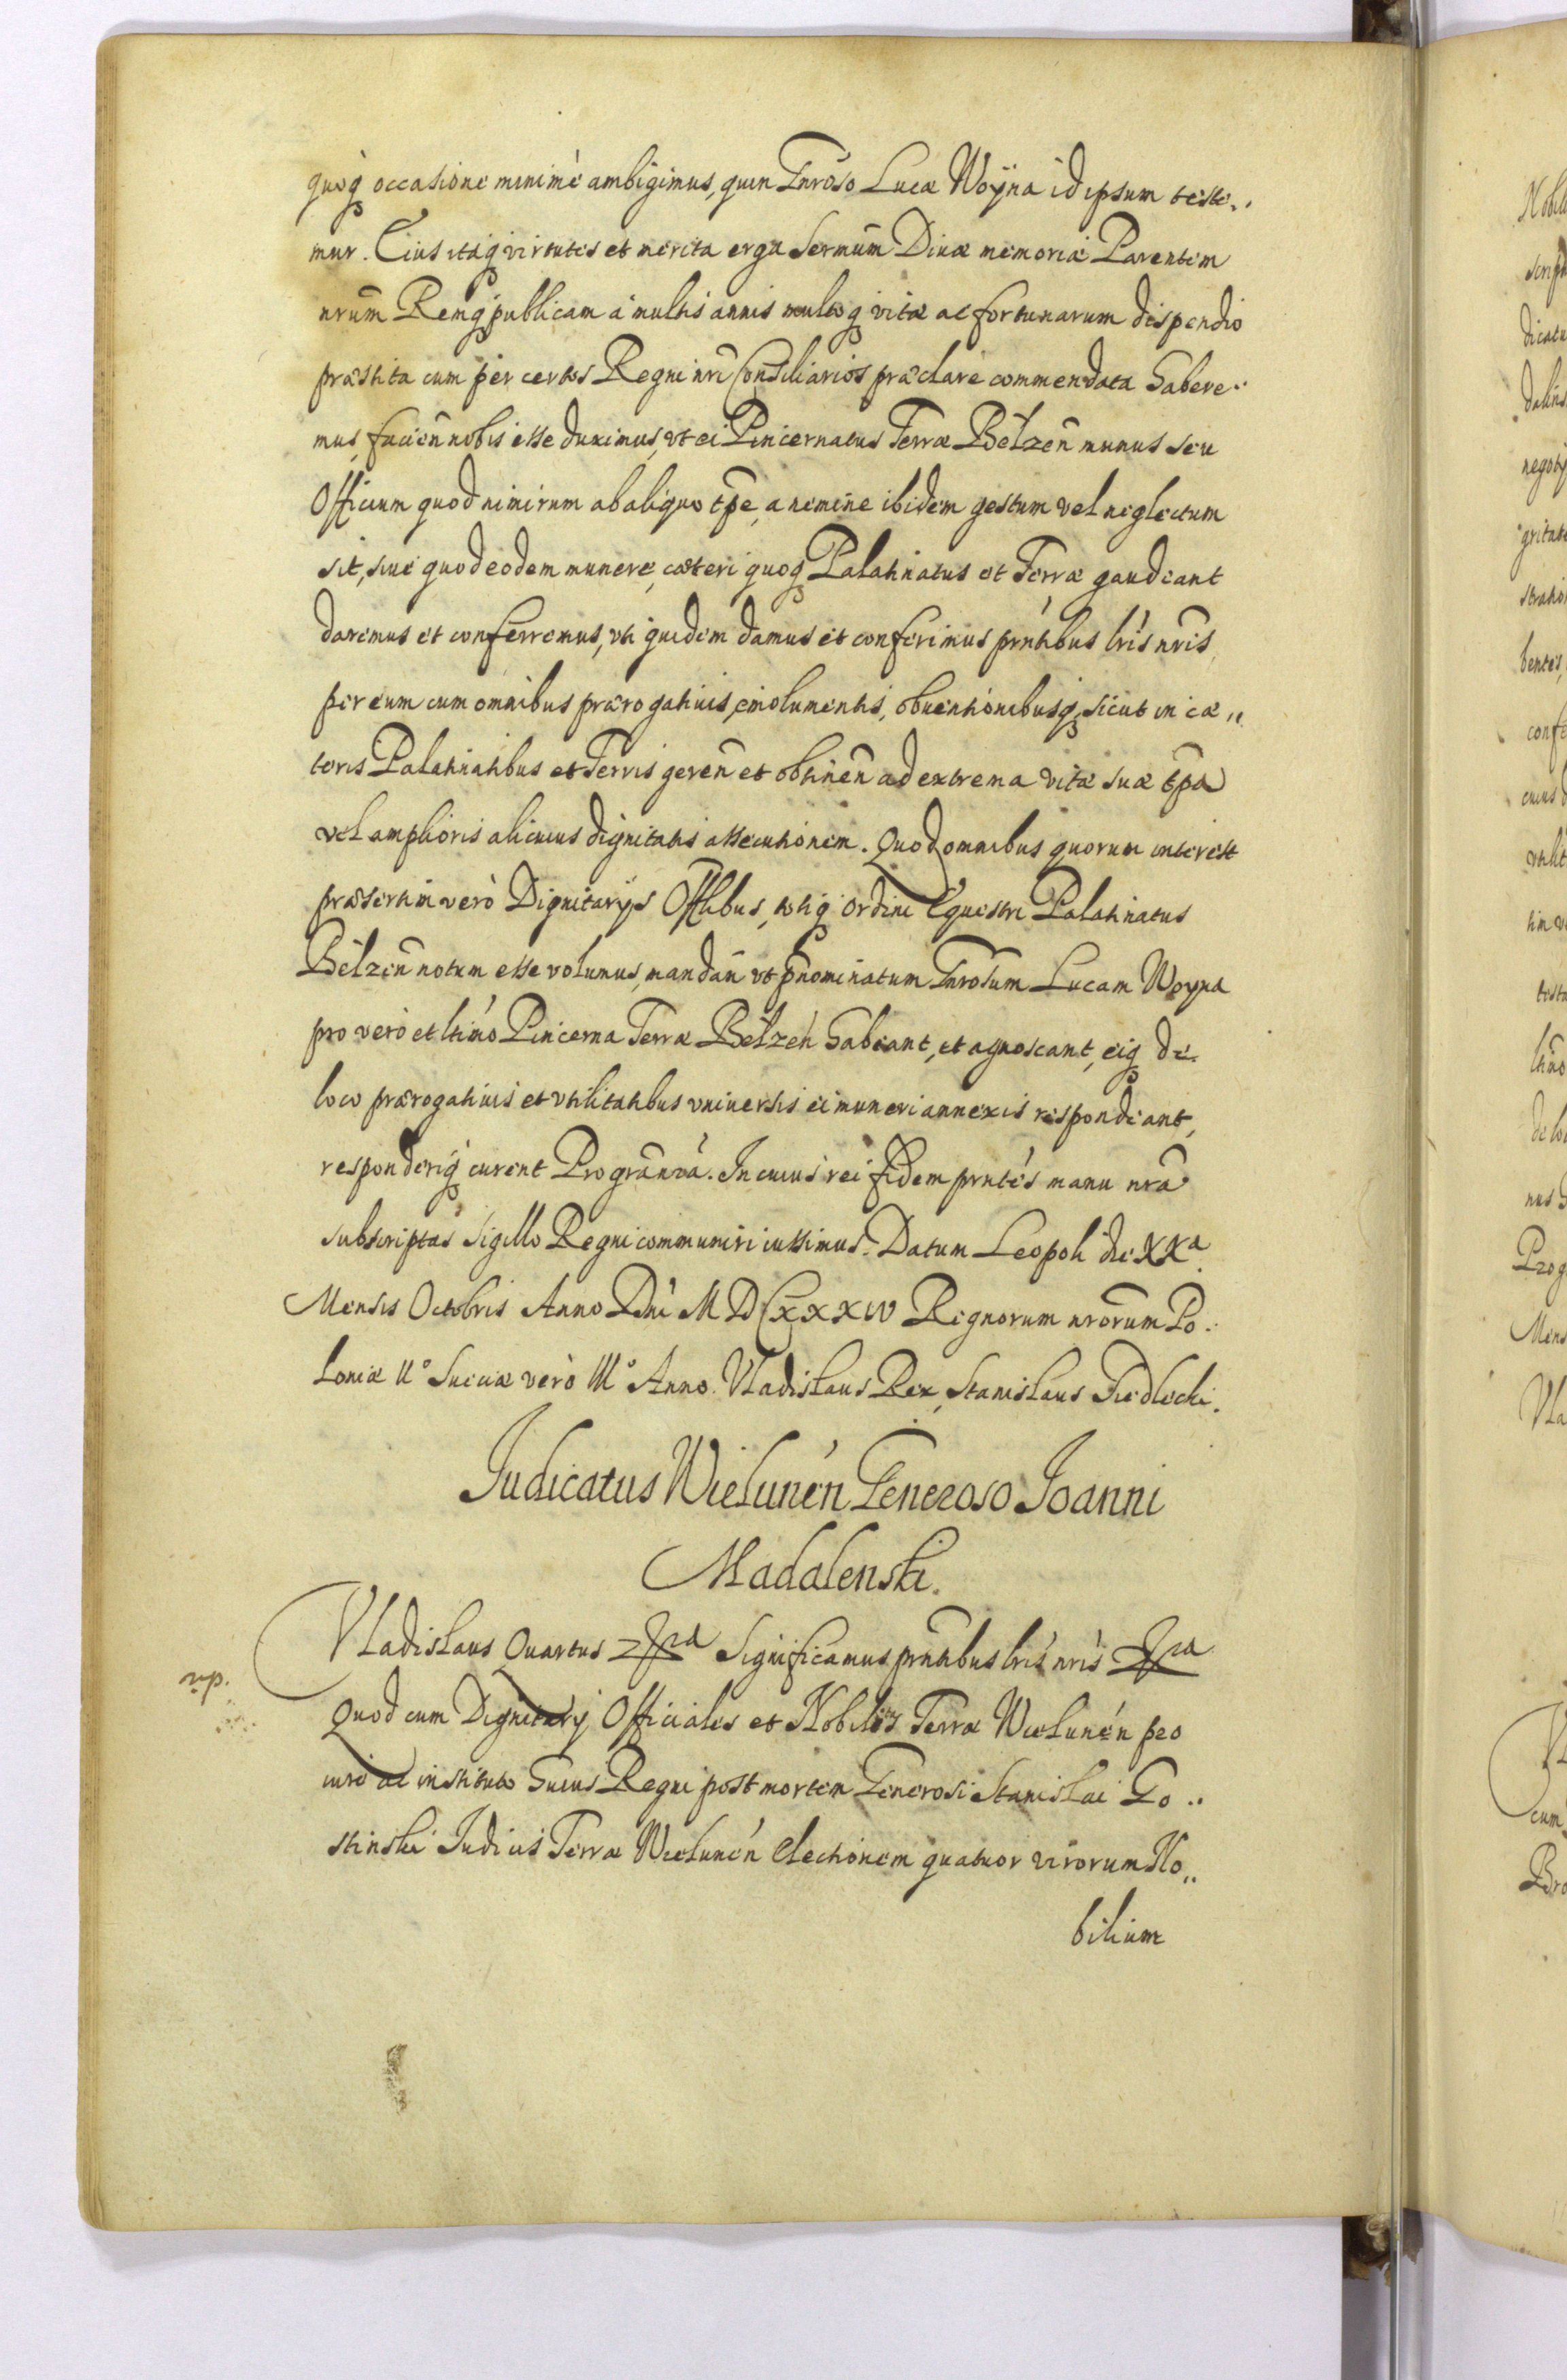 quoq̨ occasione minimè ambigimus, quin Gnroso Lucæ Woyna id ipsum teste„
mur. Eius itaq̨ virtutes et merita erga Sermũm Diuæ memoriæ Parentem
nrũm Remq̨ publicam à multis annis multoq̨ vitæ ac fortunarum dispendio
præstita cum per certos Regni nri Consiliarios præclare commendata habere„
mus, facien̄ nobis esse duximus, vt ei Pincernatus Terræ Belzen̄ munus seu
Officium quod nimirum ab aliquo tp̄e, a nemine ibidem gestum vel neglectum
sit, siue quod eodem munere, cæteri quoq̨ Palatinatus et Terræ gaudeant
daremus et conferremus, vti quidem damus et conferimus prñtibus lris nris
per eum cum omnibus prærogatiuis, emolumentis, obuentionibusq̨, sicut in cæ„
teris Palatinatibus et Terris geren̄ et obtinen̄ ad extrema vitæ suæ tp̄a
vel amplioris alicuius dignitatis assecutionem. Quod omnibus quorum interest
præsertim verò Dignitarijs Offlibus, totiq̨ Ordini Equestri Palatinatus
Belzen̄ notum esse volumus, mandan̄ vt p̄nominatum Gnrosum Lucam Woyna
pro vero et ltimo Pincerna Terræ Belzen̄ habeant, et agnoscant, eiq̨ de
loco prærogatiuis et vtilitatibus vniuersis ei muneri annexis respondeant,
responderiq̨ curent Pro grãnrã. In cuius rei fidem prñtes manu nrã
subscriptas Sigillo Regni communiri iussimus. Datum Leopoli die XXa.
Mensis Octobris Anno Dnĩ MDCXXXIV Regnorum nrorum Po„
loniæ IIº Sueciæ verò IIIº Anno. Vladislaus Rex, Stanislaus Siedlecki.
Judicatus Wielunén Generoso Joanni
Madalenski.
Vladislaus Quartus &ra Significamus prñtibus lris nris &ra
Quod cum Dignitarij Officiales et Nobiles Terræ Wielunén pro
iure ac instituto huius Regni post mortem Generosi Stanislai Go„
stinski Judicis Terræ Wielunén electionem quatuor virorum No„
bilium